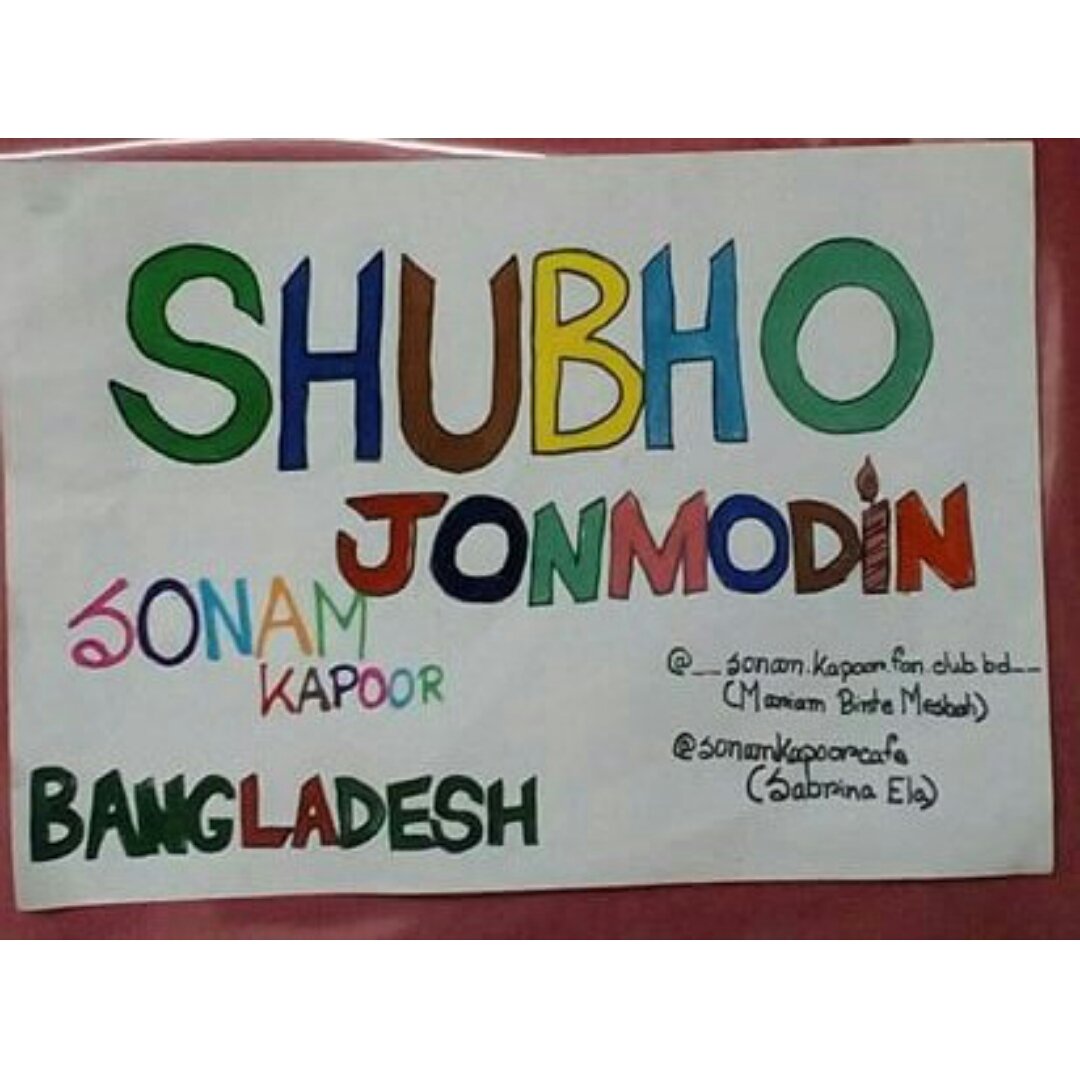 SHUBHO
JONMODiN
SONAM
KAPOOR
BANGLADESH
@__sonam.kapoor.fan.club.bd__
(Mariam Binte Mesbah)
@sonamkapoorcafe
(Sabrina Ela)